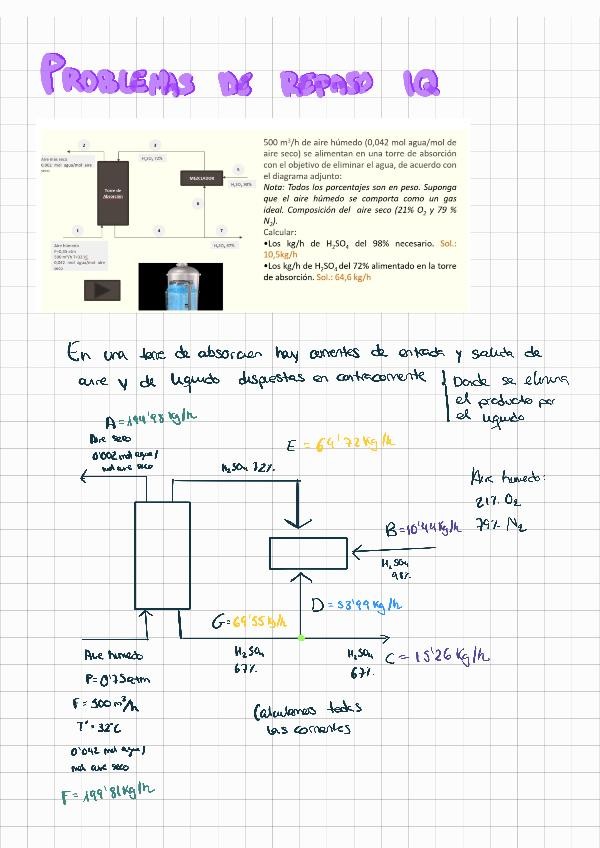 PROBLEMAS DE REPASO IQ
500 m³/h de aire húmedo (0,042 mol agua/mol de
aire seco) se alimentan en una torre de absorción
con el objetivo de eliminar el agua, de acuerdo con
el diagrama adjunto:
Nota: Todos los porcentajes son en peso. Suponga
que el aire húmedo se comporta como un gas
ideal. Composición del aire seco (21% O₂ y 79 %
N₂).
Calcular:
•Los kg/h de H₂SO₄ del 98% necesario. Sol.:
10,5kg/h
•Los kg/h de H₂SO₄ del 72% alimentado en la torre
de absorción. Sol.: 64,6 kg/h
2
3
Aire más seco
0,002 mol agua/mol aire
seco
H₂SO₄ 72%
Torre de
Absorción
MEZCLADOR
5
H₂SO₄ 98%
6
1
4
7
H₂SO₄ 67%
Aire húmedo
500 m³/h T=32 ºC
0,042 mol agua/mol aire
seco
En una torre de absorcion hay corrientes de entrada y salida de
aire y de liquido dispuestas en contracorriente
Donde se elimina
el producto por
el liquido
A = 194'98 kg/h
Aire seco
0'002 mol agua/
mol aire seco
E = 64'72 kg/h
H₂SO₄ 72%
Aire humedo:
21% O₂
79% N₂
B = 10'44 kg/h
H₂SO₄
98%
D = 53'99 kg/h
G = 69'55 kg/h
H₂SO₄
67%
H₂SO₄
67%
C = 15'26 kg/h
Aire humedo
P = 0'75 atm
F = 500 m³/h
Tº = 32ºC
0'042 mol agua/
mol aire seco
F = 199'81 kg/h
Calculamos todas
las corrientes